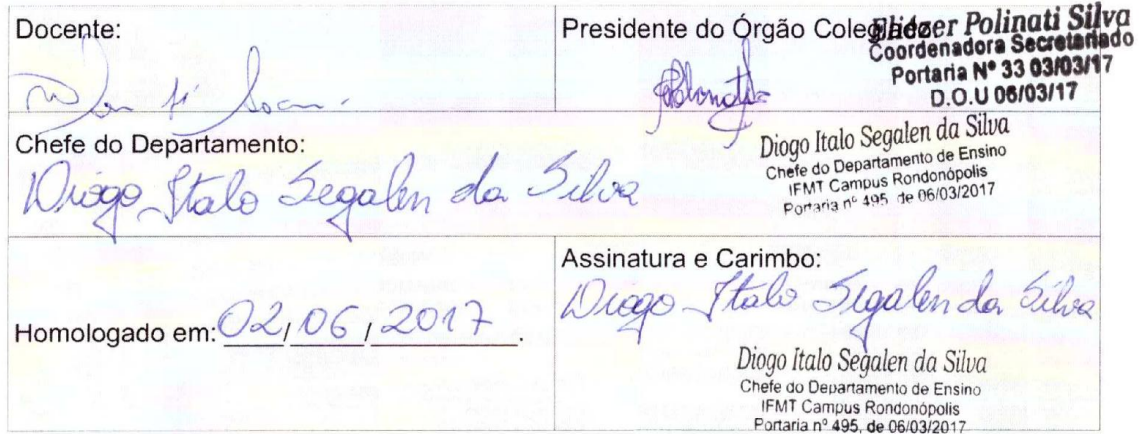 Docente:
Presidente do Órgão Colegiado:
Eliezer Polinati Silva
Coordenadora Secretariado
Portaria Nº 33 03/03/17
D.O.U 06/03/17
Chefe do Departamento:
Diogo Italo Segalen da Silva
Diogo Italo Segalen da Silva
Chefe do Departamento de Ensino
IFMT Campus Rondonópolis
Portaria nº 495, de 06/03/2017
Homologado em: 02/06/2017.
Assinatura e Carimbo:
Diogo Italo Segalen da Silva
Diogo Italo Segalen da Silva
Chefe do Departamento de Ensino
IFMT Campus Rondonópolis
Portaria nº 495, de 06/03/2017